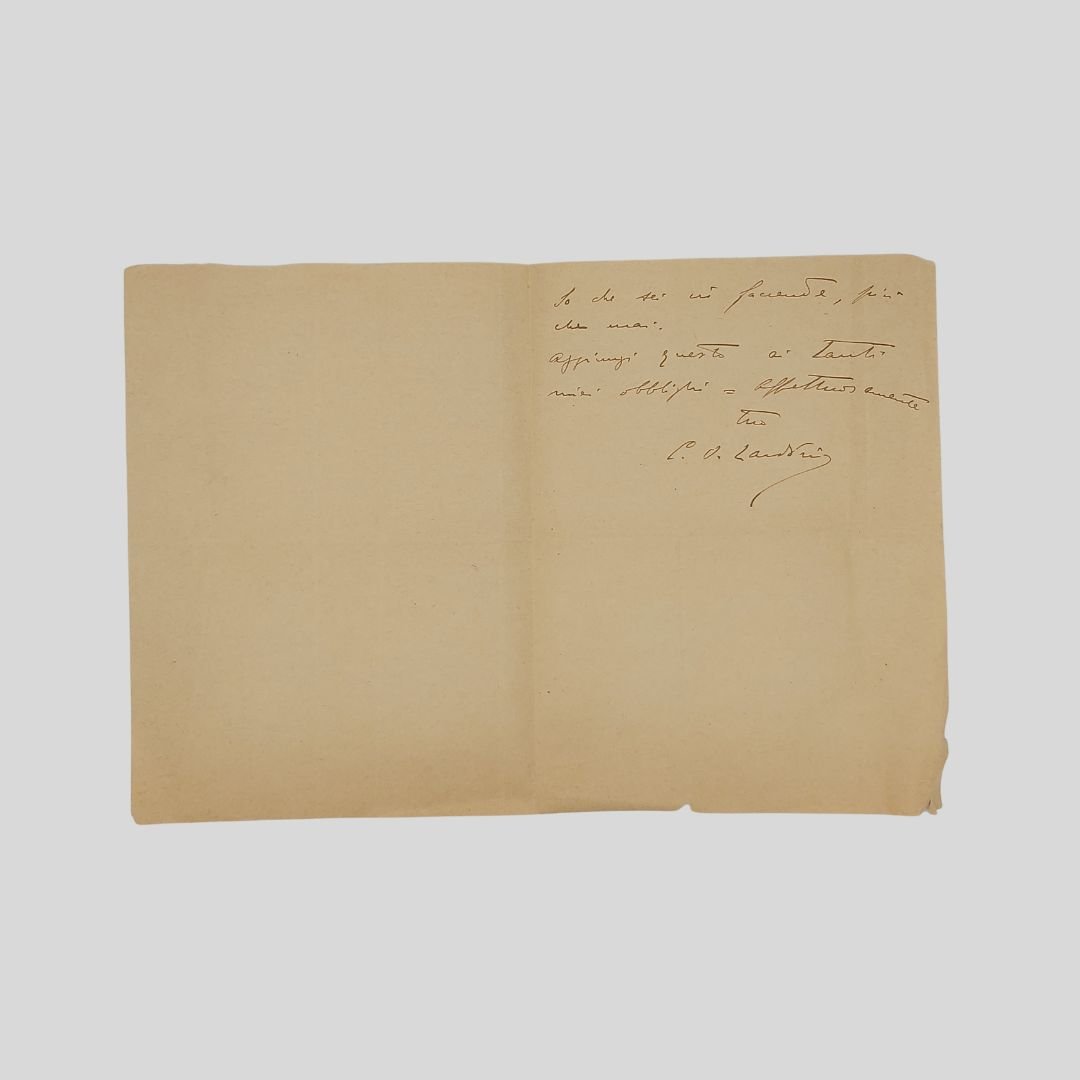 So che sei in faccende, più
che mai.
Aggiungi questo ai tanti
miei obblighi = affettuosamente
tuo
C. O.